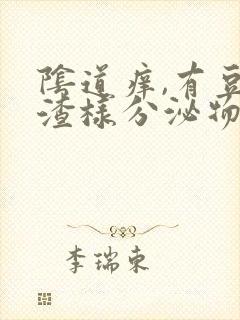 陰道痒,有豆
渣樣分泌物
李瑞東